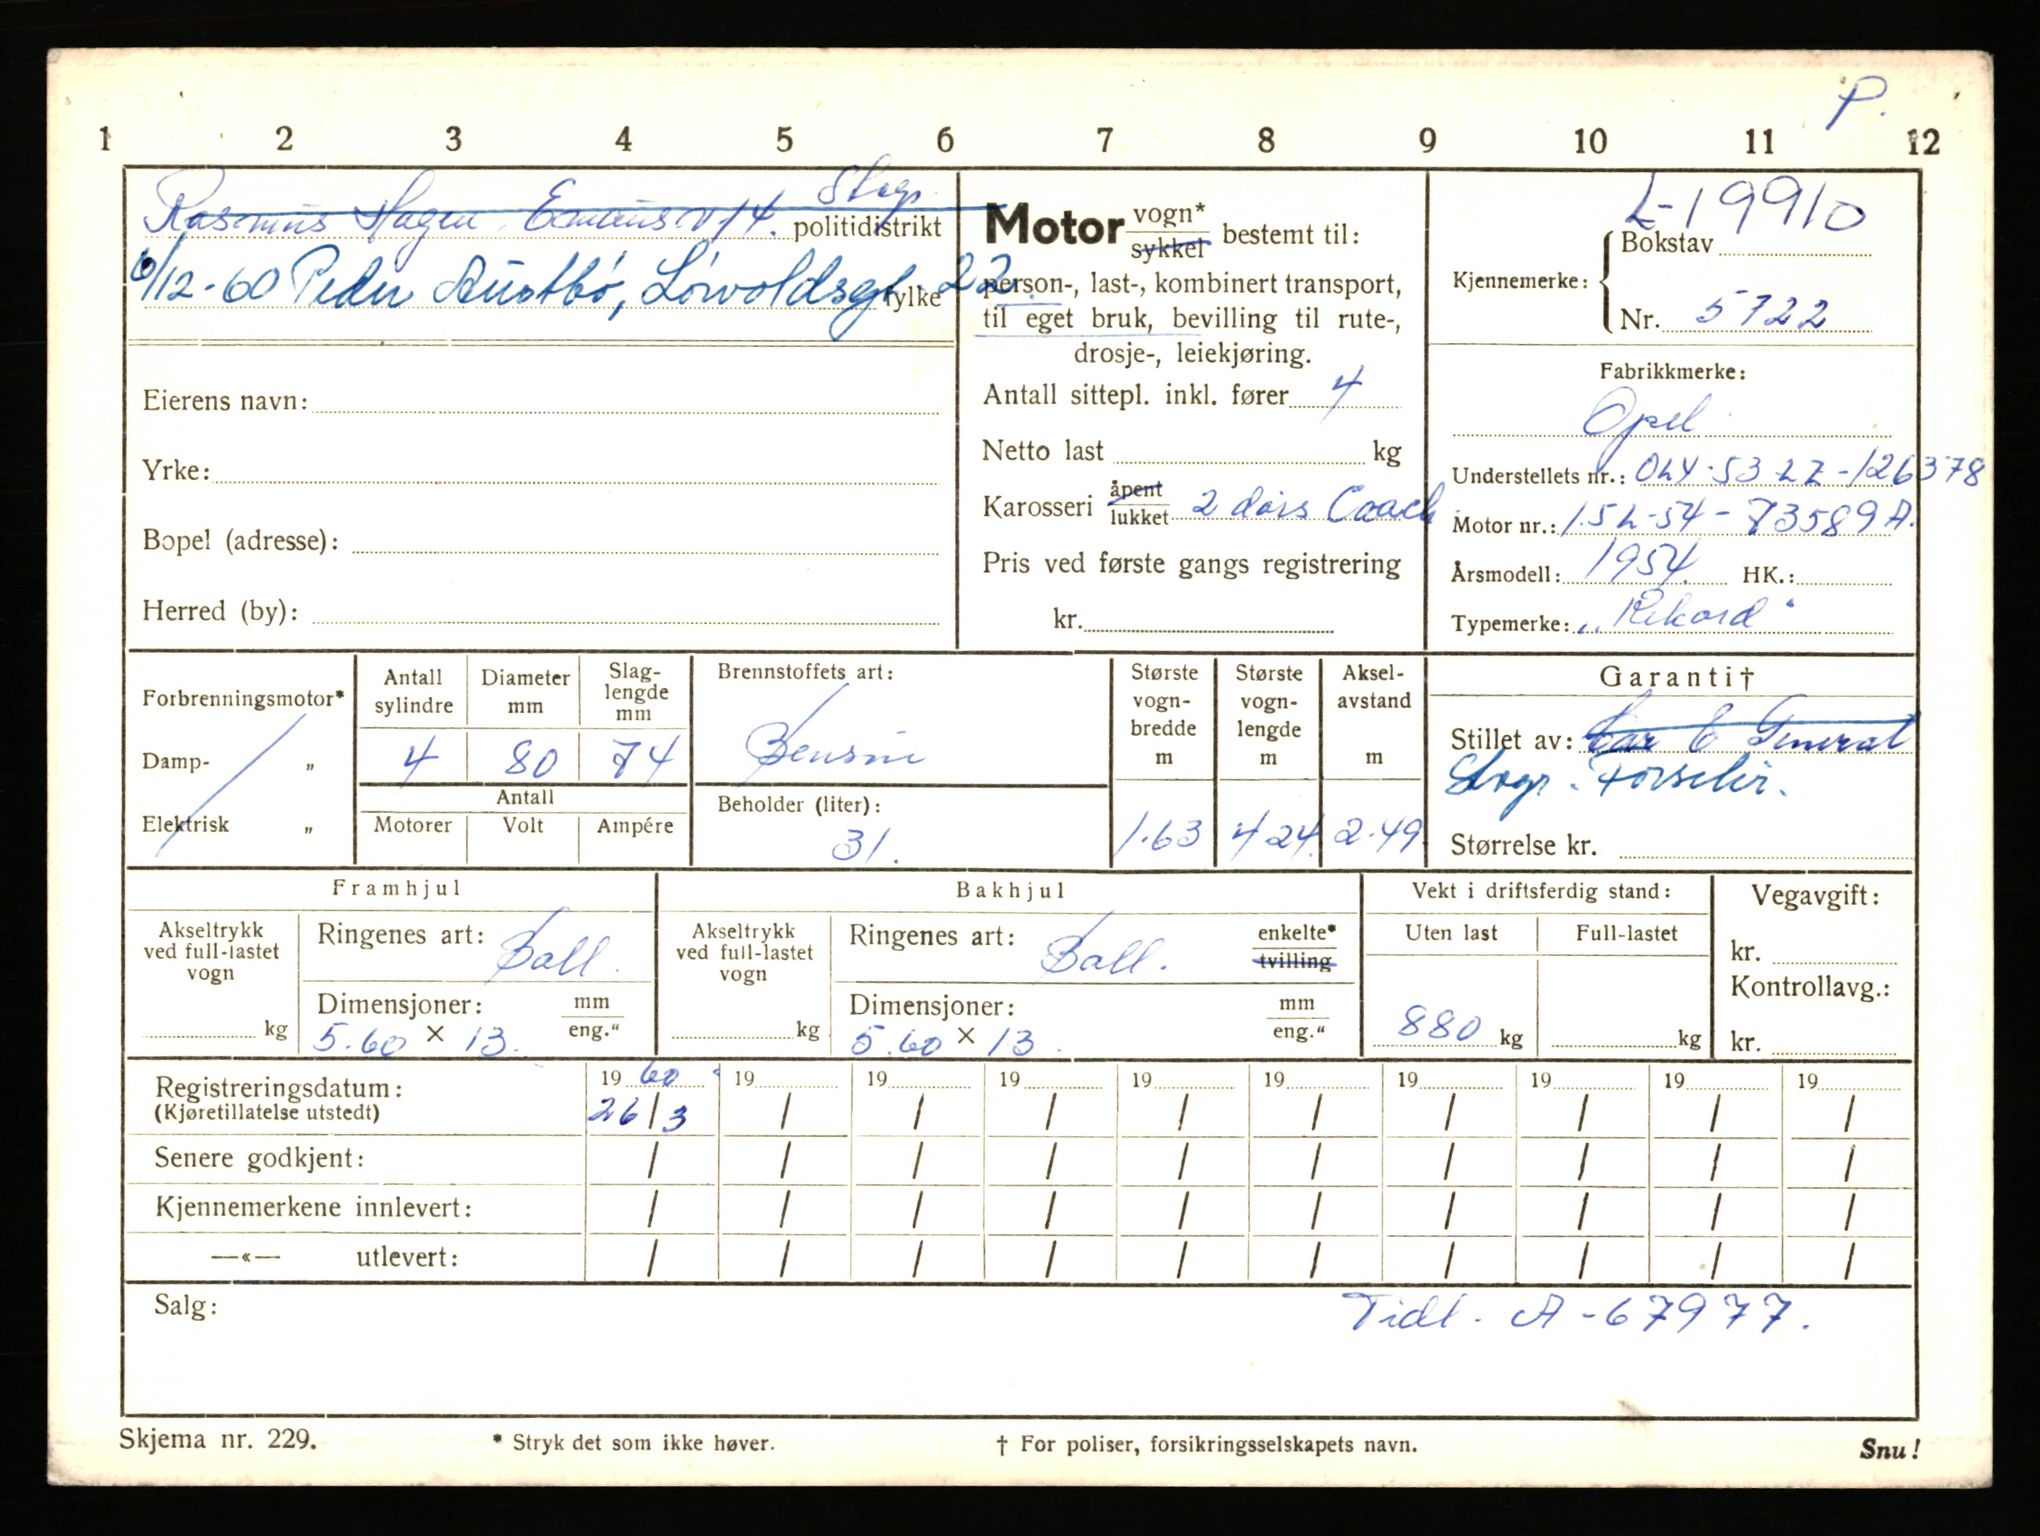 P.
1 2 3 4 5 6 7 8 9 10 11 12
Rasmus Hagen Emausv 14. Stvgr. politidistrikt
6/12-60 Peder Austbø, Løwoldsgt. 22. fylke
Eierens navn:
Yrke:
Bopel (adresse):
Herred (by):
Motor vogn* sykkel bestemt til:
person-, last-, kombinert transport,
til eget bruk, bevilling til rute-,
drosje-, leiekjøring.
Antall sittepl. inkl. fører 4
Netto last kg
Karosseri åpent lukket 2 dørs Coach
Pris ved første gangs registrering
kr.
L-19910
Bokstav
Kjennemerke:
Nr. 5722
Fabrikkmerke:
Opel
Understellets nr.: OLY-53 LZ-126378
Motor nr.: 1.5L-54-73589 A.
Årsmodell: 1954. HK.:
Typemerke: „Rekord"
Forbrenningsmotor*
Damp- „
Elektrisk „
Antall sylindre Diameter mm Slag-lengde mm
4 80 74
Antall
Motorer Volt Ampére
Brennstoffets art:
Bensin
Beholder (liter):
31.
Største vogn-bredde m Største vogn-lengde m Aksel-avstand m
1.63 4 24 2.49
Garanti†
Stillet av: General
Stvgr. Forsekr.
Størrelse kr.
Framhjul
Akseltrykk ved full-lastet vogn
kg
Ringenes art: Ball.
Dimensjoner: mm eng.“
5.60 × 13.
Bakhjul
Akseltrykk ved full-lastet vogn
kg
Ringenes art: Ball. enkelte* tvilling
Dimensjoner: mm eng.“
5.60 × 13.
Vekt i driftsferdig stand:
Uten last Full-lastet
880 kg kg
Vegavgift:
kr.
Kontrollavg.:
kr.
Registreringsdatum: 19 60 19 19 19 19 19 19 19 19 19
(Kjøretillatelse utstedt) 26/3 / / / / / / / / /
Senere godkjent: / / / / / / / / / /
Kjennemerkene innlevert: / / / / / / / / / /
—«— utlevert: / / / / / / / / / /
Salg: Tidl. A-67977.
Skjema nr. 229. * Stryk det som ikke høver. † For poliser, forsikringsselskapets navn. Snu!